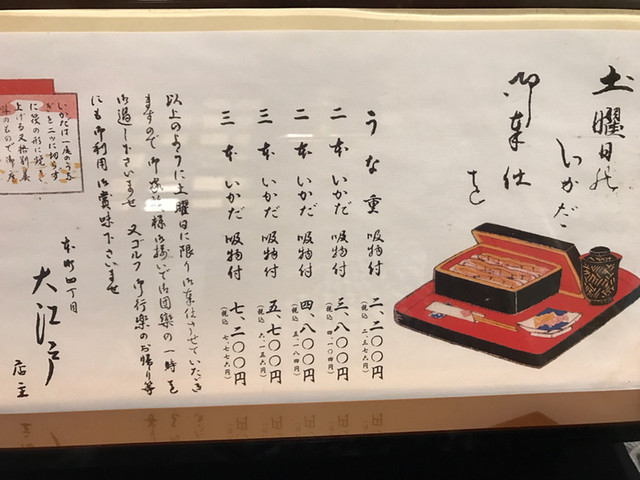 土曜日の
いかだ
御奉仕
うな重 吸物付 二、二〇〇円
(税込 二、三七六円)
二本いかだ 吸物付 三、八〇〇円
(税込 四、一〇四円)
二本いかだ 吸物付 四、八〇〇円
(税込 五、一八四円)
三本いかだ 吸物付 五、七〇〇円
(税込 六、一五六円)
三本いかだ 吸物付 七、二〇〇円
(税込 七、七七六円)
以上のように土曜日に限り御奉仕させていただき
ますので 御家族様御揃いで御団樂の一時を
御過し下さいませ 又ゴルフ 御行楽のお帰り等
にも御利用 御賞味下さいませ
本町四丁目
大江戸 店主
いかだは一尾のうな
ぎを二ツに切らず
に後の形に焼き
上げる又格別美
味のもので御座